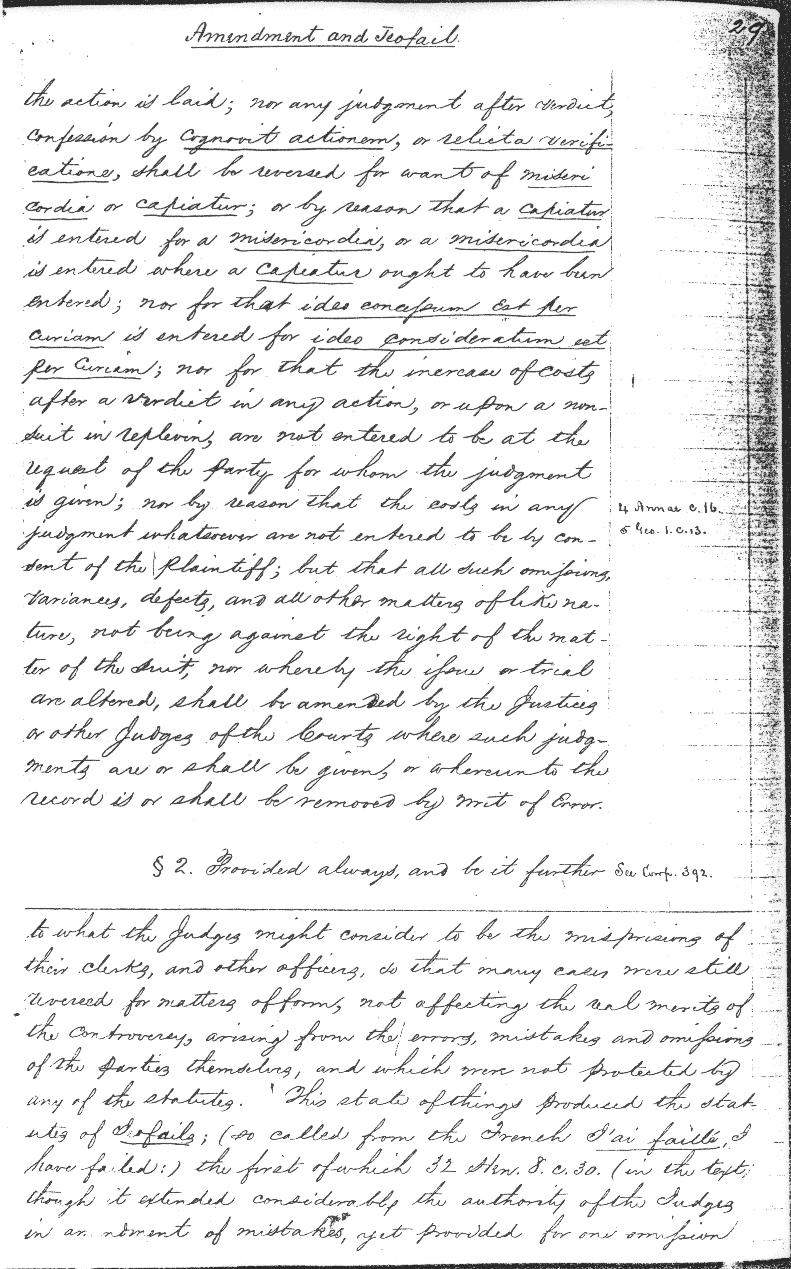 Amendment and Jeofail.
29
the action is laid; nor any judgment after verdict,
confession by Cognovit actionem, or relicta verifi-
catione, shall be reversed for want of miseri
cordia or capiatur; or by reason that a capiatur
is entered for a misericordia, or a misericordia
is entered where a capiatur ought to have been
entered; nor for that ideo concessum est per
curiam is entered for ideo consideratum est
per Curiam; nor for that the increase of costs
after a verdict in any action, or upon a non-
suit in replevin, are not entered to be at the
request of the Party for whom the judgment
is given; nor by reason that the costs in any
4 Annae c. 16.
judgment whatsoever are not entered to be by con-
5 Geo. 1. c. 13.
sent of the Plaintiff; but that all such omissions,
variances, defects, and all other matters of like na-
ture, not being against the right of the mat-
ter of the suit, nor whereby the issue or trial
are altered, shall be amended by the Justices
or other Judges of the Courts where such judg-
ments are or shall be given, or whereunto the
record is or shall be removed by Writ of Error.
§ 2. Provided always, and be it further See Comp. 392.
to what the Judges might consider to be the misprisions of
their clerks, and other officers, so that many cases were still
reversed for matters of form, not affecting the real merits of
the controversy, arising from the errors, mistakes and omissions
of the Parties themselves, and which were not protected by
any of the statutes. This state of things produced the stat-
utes of Jeofails; (so called from the French J'ai faillé, I
have failed:) the first of which 32 Hen. 8. c. 30. (in the text,
though it extended considerably the authority of the Judges
in an ndment of mistakes, yet provided for one omission